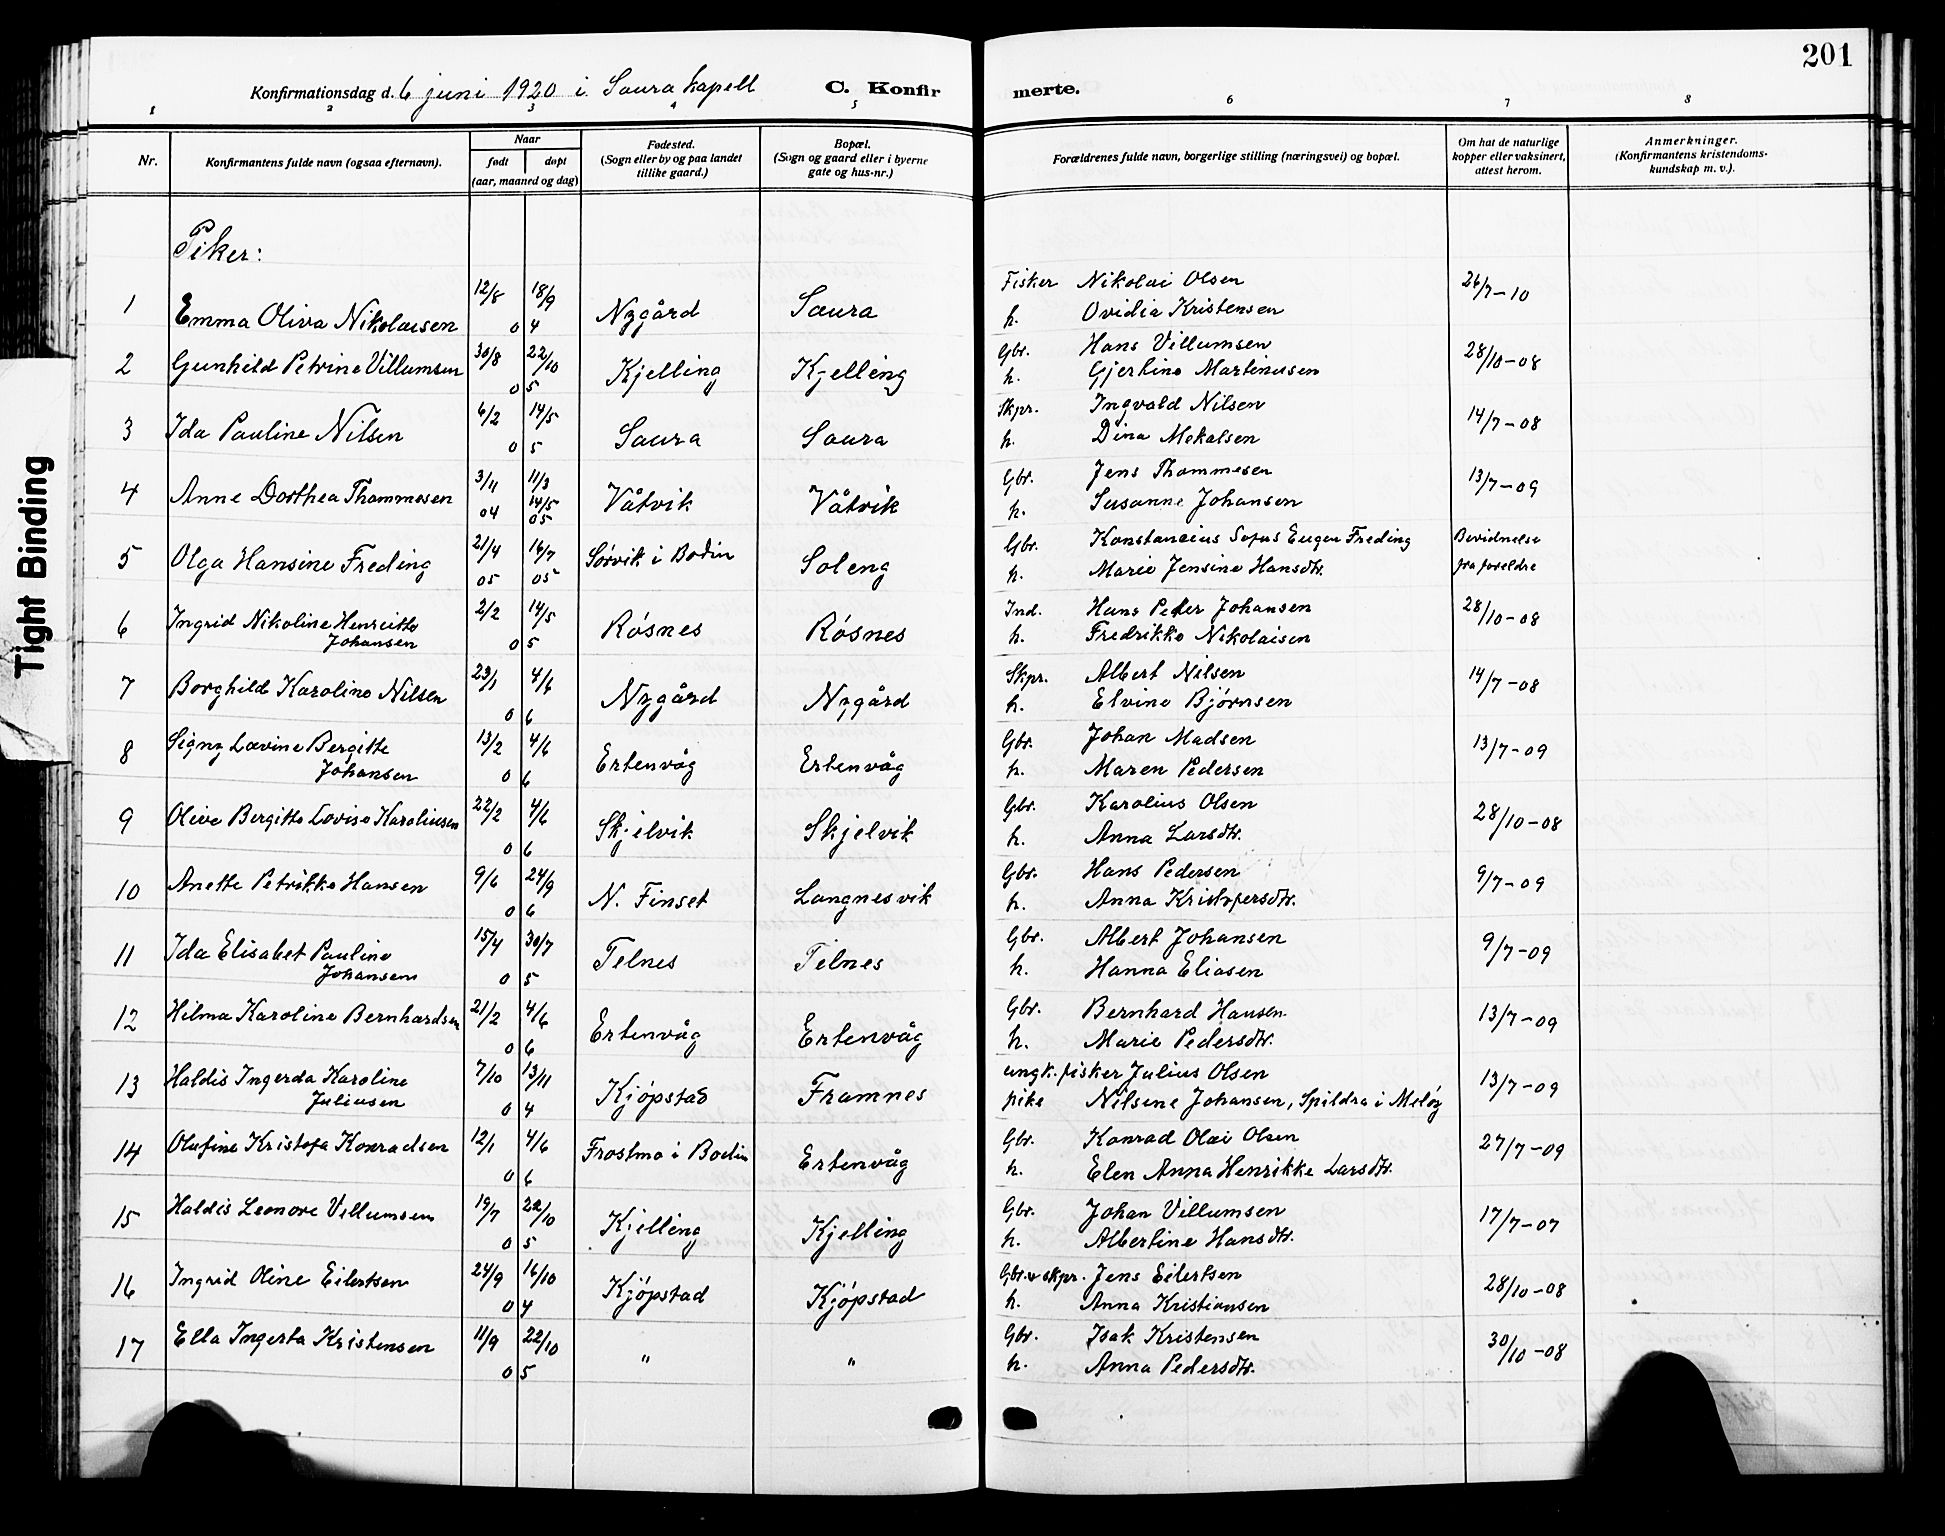 201
Konfirmationsdag d. 6 juni 1920 i Saura kapell C. Konfirmerte.
1 2 3 4 5 6 7 8
Nr. Konfirmantens fulde navn (ogsaa efternavn). Naar født døpt (aar, maaned og dag) Fødested. (Sogn eller by og paa landet tillike gaard.) Bopæl. (Sogn og gaard eller i byerne gate og hus-nr.) Forældrenes fulde navn, borgerlige stilling (næringsvei) og bopæl. Om hat de naturlige kopper eller vaksinert, attest herom. Anmerkninger. (Konfirmantens kristendoms-kundskap m. v.).
Tight Binding
Piker:
1 Emma Oliva Nikolaisen 12/8 18/9 04 Nygård Saura Fisker Nikolai Olsen 26/7-10
h. Ovidia Kristensen
2 Gunhild Petrine Villumsen 30/8 22/10 05 Kjelling Kjelling Gbr. Hans Villumsen 28/10-08
h. Gjertine Martinusen
3 Ida Pauline Nilsen 6/2 14/5 05 Saura Saura Skpr. Ingvald Nilsen 14/7-08
h. Dina Mekalsen
4 Anne Dorthea Thommesen 3/11 04 11/3 14/5 05 Våtvik Våtvik Gbr. Jens Thommesen 13/7-09
h. Susanne Johansen
5 Olga Hansine Freding 21/4 05 16/7 05 Sørvik i Bodin Soleng Gbr. Konstancius Sofus Eugen Freding Bevidnelse
h. Marie Jensine Hansdtr. fra foreldre
6 Ingrid Nikoline Henriette 2/2 14/5 05 Røsnes Røsnes Ind. Hans Peder Johansen 28/10-08
Johansen h. Fredrikke Nikolaisen
7 Borghild Karoline Nilsen 23/1 4/6 06 Nygård Nygård Skpr. Albert Nilsen 14/7-08
h. Elvine Bjørnsen
8 Signy Lovine Bergitte 13/2 4/6 06 Ertenvåg Ertenvåg Gbr. Johan Madsen 13/7-09
Johansen h. Maren Pedersen
9 Olive Bergitte Lovise Karoliusen 22/2 4/6 06 Skjelvik Skjelvik Gbr. Karolius Olsen 28/10-08
h. Anna Larsdtr.
10 Anette Petrikke Hansen 9/6 24/9 06 N. Finset Langnesvik Gbr. Hans Pedersen 9/7-09
h. Anna Kristofersdtr.
11 Ida Elisabet Pauline 15/4 30/7 05 Telnes Telnes Gbr. Albert Johansen 9/7-09
Johansen h. Hanna Eliasen
12 Hilma Karoline Bernhardsen 21/2 4/6 06 Ertenvåg Ertenvåg Gbr. Bernhard Hansen 13/7-09
h. Marie Pedersdtr.
13 Haldis Ingerda Karoline 7/10 13/11 04 Kjøpstad Framnes ungk. fisker Julius Olsen 13/7-09
Juliusen pike Nilsine Johansen, Spildra i Meløy
14 Olufine Kristofa Konradsen 12/1 4/6 06 Frostmo i Bodin Ertenvåg Gbr. Konrad Olai Olsen 27/7-09
h. Elen Anna Henrikke Larsdtr.
15 Haldis Leonore Villumsen 19/7 22/10 05 Kjelling Kjelling Gbr. Johan Villumsen 17/7-07
h. Albertine Hansdtr.
16 Ingrid Oline Eilertsen 24/9 16/10 04 Kjøpstad Kjøpstad Gbr. v skpr. Jens Eilertsen 28/10-08
h. Anna Kristiansen
17 Ella Ingerta Kristensen 11/9 22/10 05 " " Gbr. Isak Kristensen 30/10-08
h. Anna Pedersdtr.